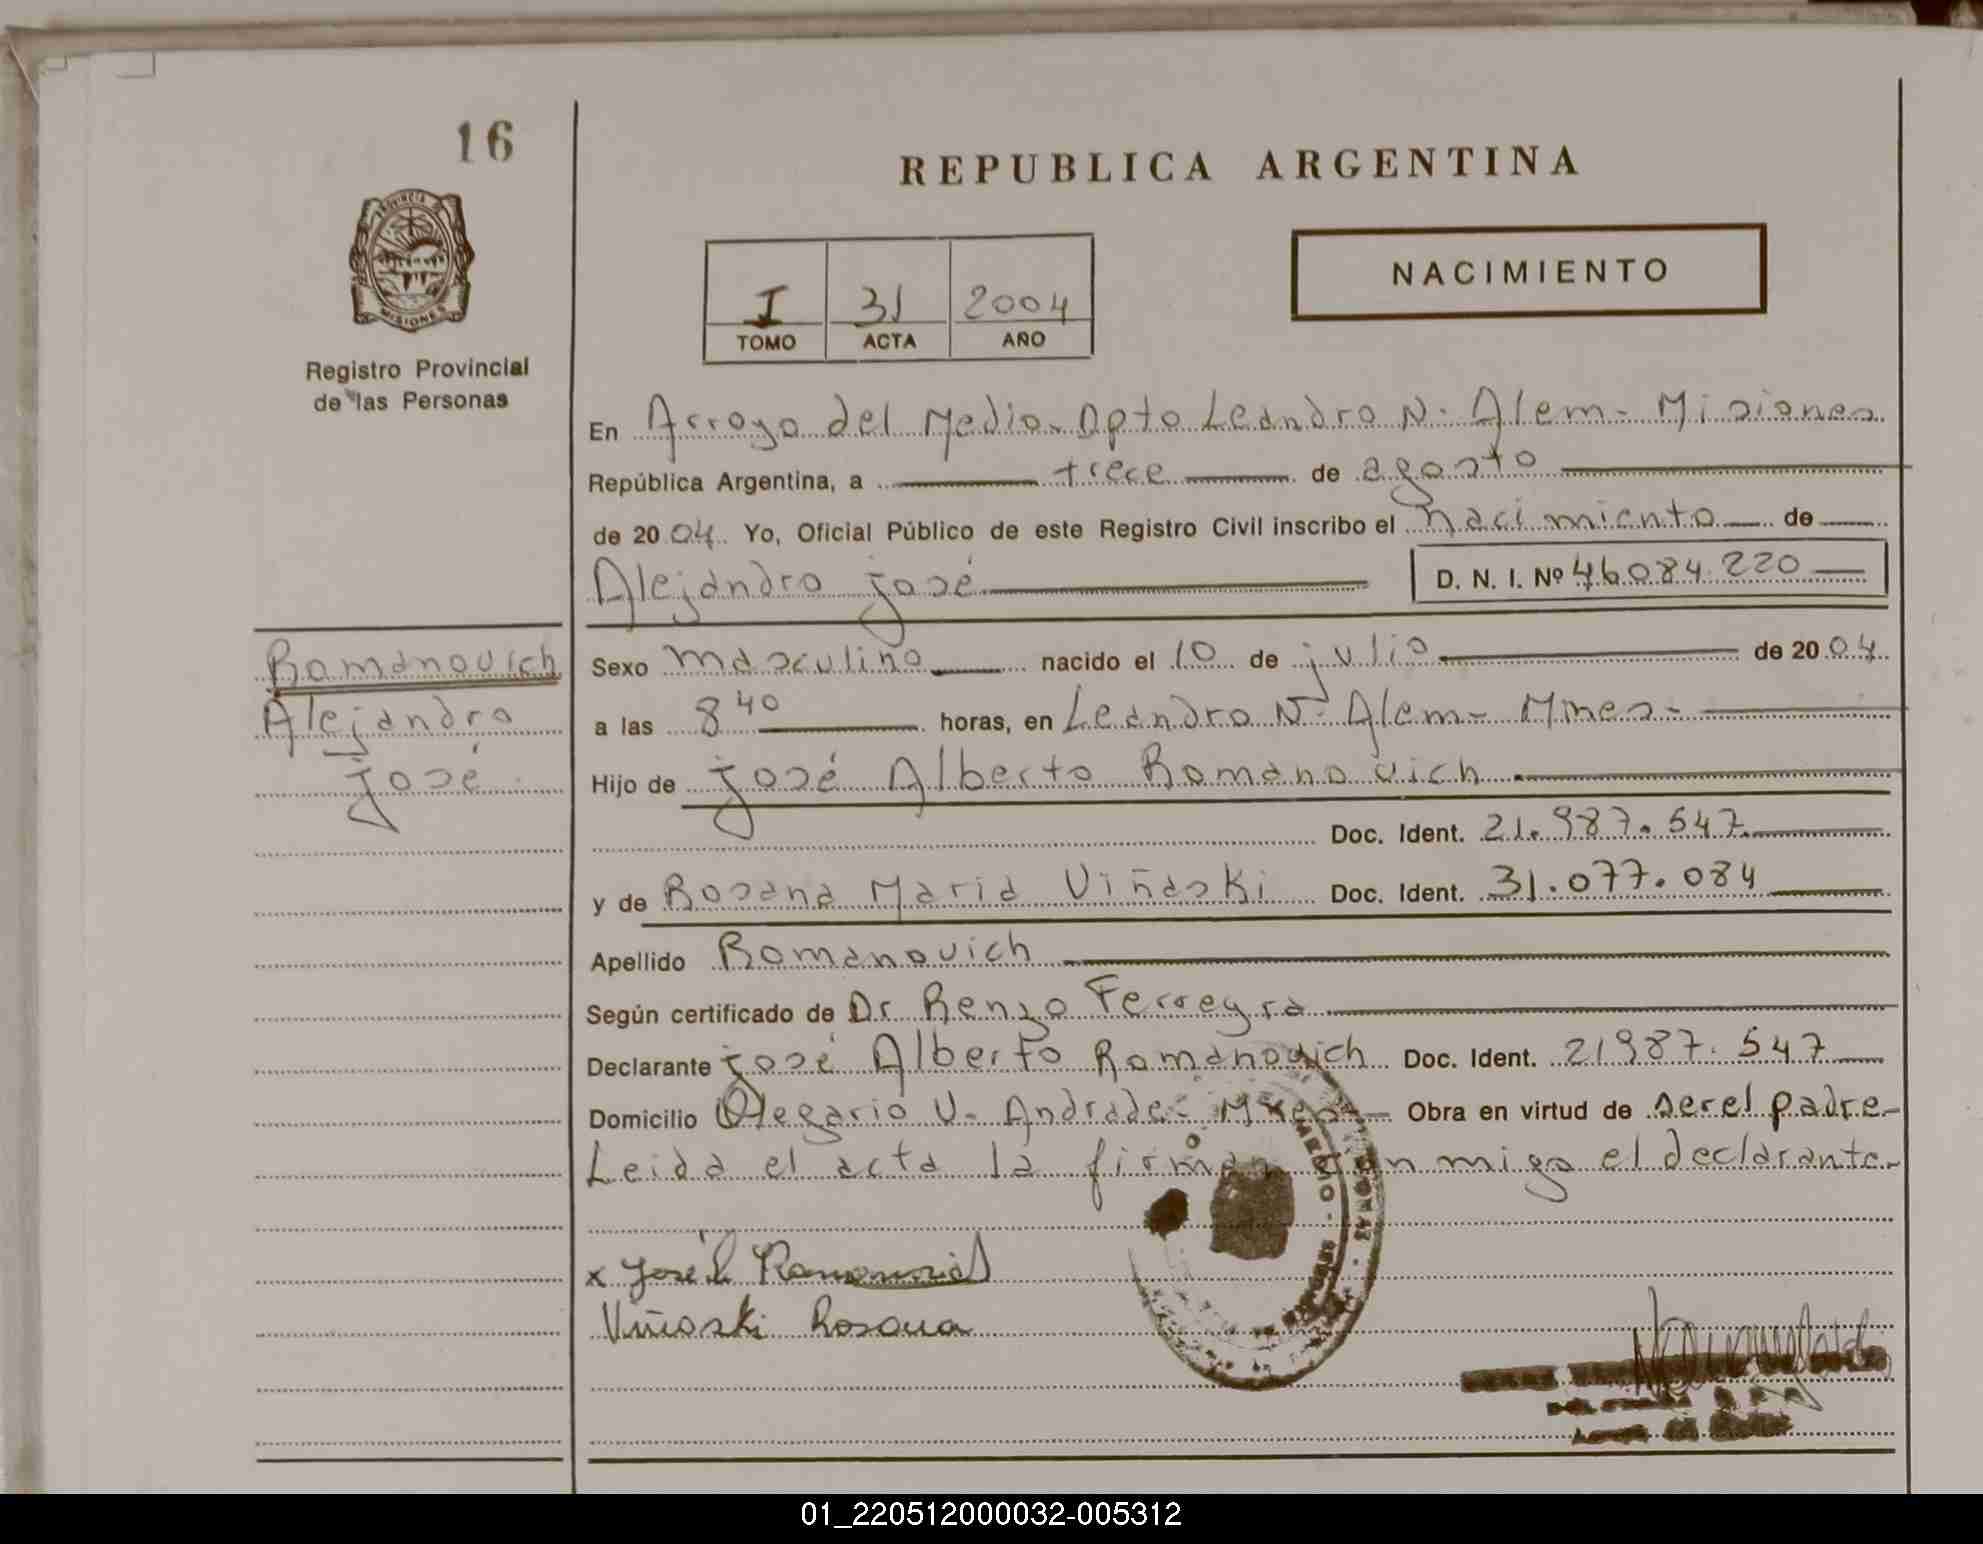 16
REPUBLICA ARGENTINA
PROVINCIA DE
MISIONES
Registro Provincial
de las Personas
NACIMIENTO
I 31 2004
TOMO ACTA AÑO
En Arroyo del Medio - Dpto Leandro N. Alem - Misiones
República Argentina, a trece de agosto
de 2004. Yo, Oficial Público de este Registro Civil inscribo el nacimiento de
Alejandro josé D. N. I. Nº 46.084.220
Romanovich
Alejandro
josé
Sexo masculino nacido el 10 de julio de 2004
a las 8 40 horas, en Leandro N. Alem - Mnes -
Hijo de josé Alberto Romanovich
Doc. Ident. 21.987.547
y de Rosana Maria Viñaski Doc. Ident. 31.077.084
Apellido Romanovich
Según certificado de Dr Renzo Ferreyra
Declarante josé Alberto Romanovich Doc. Ident. 21987.547
Domicilio Olegario V. Andrade - Obra en virtud de ser el padre -
Leida el acta la firman conmigo el declarante -
x José Romanovich
Viñaski Rosana
MEDIO
01_220512000032-005312